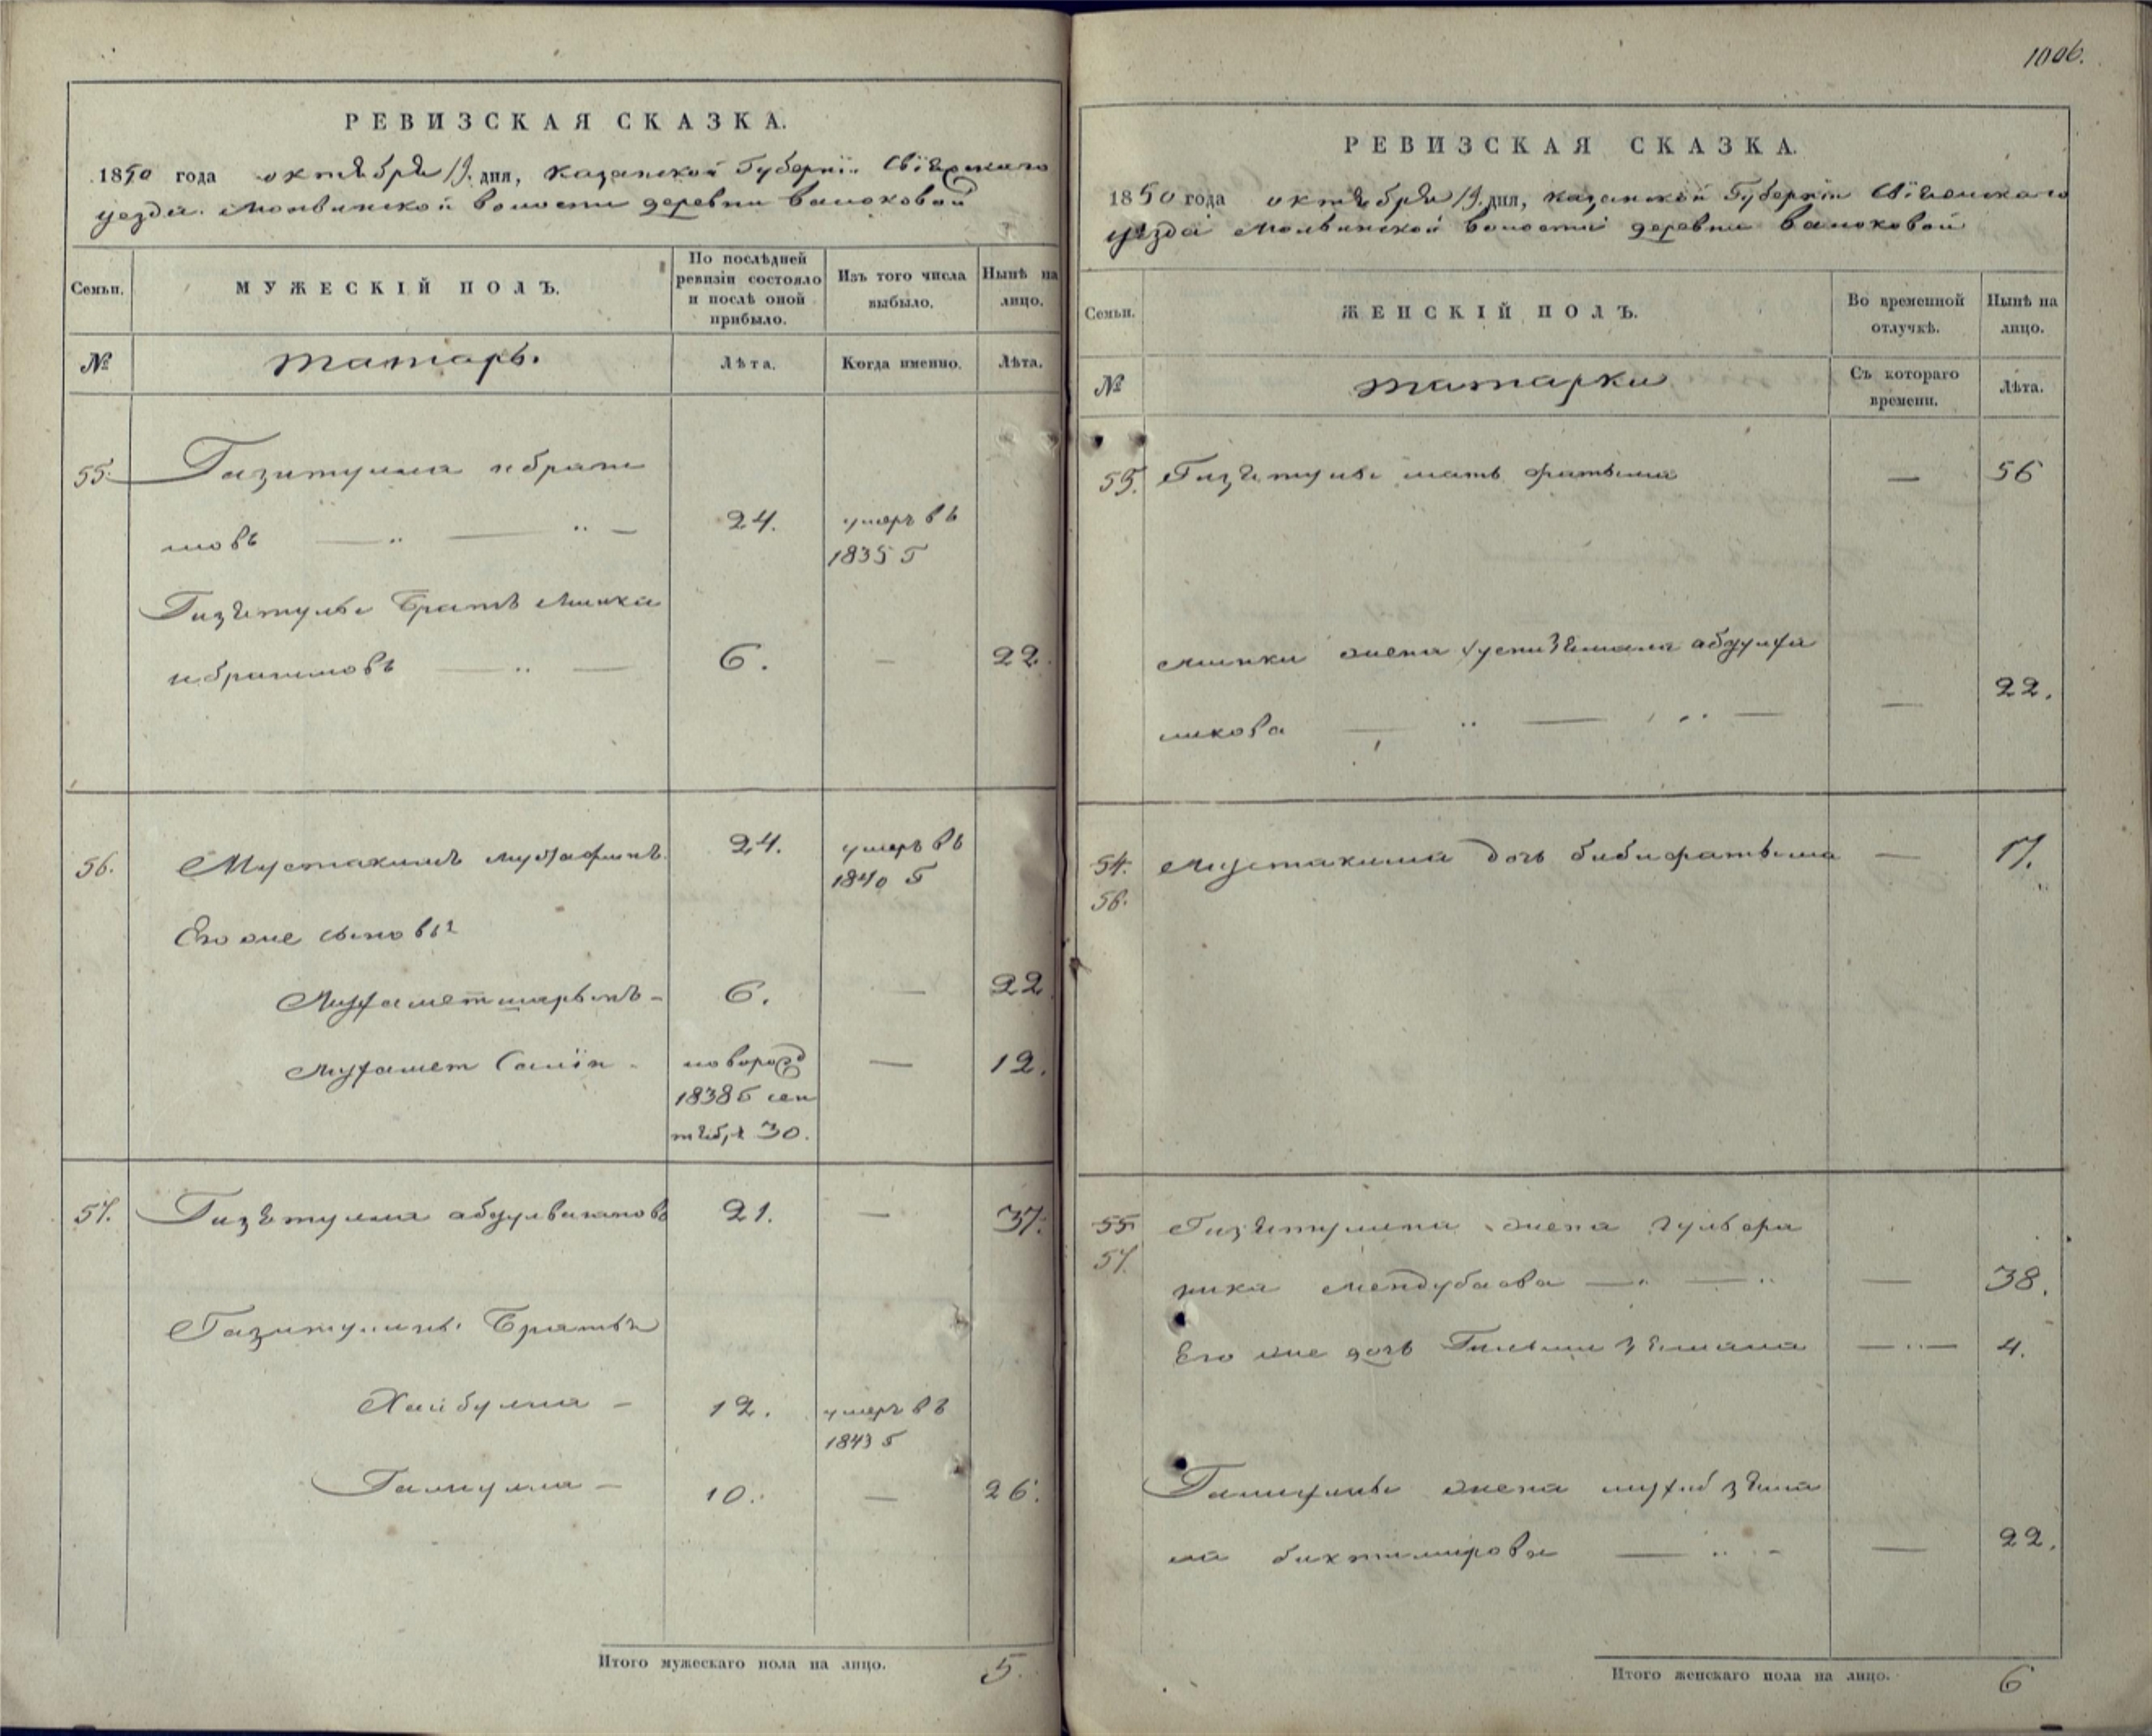 1006.
РЕВИЗСКАЯ СКАЗКА.
1850 года октября 19 дня, казанской Губерніи Свіяжскаго
уезда Молвинской волости деревни Валюковой
Семьи.
МУЖЕСКІЙ ПОЛЪ.
По послѣдней
ревизіи состояло
и послѣ оной
прибыло.
Изъ того числа
выбыло.
Нынѣ на
лицо.
№
татаръ.
Лѣта.
Когда именно.
Лѣта.
55. Газитулла ибраги
мовъ 24. умеръ въ
1835 Г
Гизятуллы братъ Минка
ибрагимовъ 6. — 22.
56. Мустакимъ 24. умеръ въ
1840 Г
Его же сыновья
6. — 22
Мухамет Салiи новорожд — 12.
1838 Г сен
тяб,я 30.
57. Гизятулла 21. — 37.
Газитуллины братья
Хайбулла — 12. умеръ въ
1843 Г
Гатаулла — 10. — 26.
Итого мужескаго пола на лицо. 5.
РЕВИЗСКАЯ СКАЗКА.
1850 года октября 19 дня, казанской Губерніи Свіяжскаго
уезда Молвинской волости деревни Валюковой
Семьи.
ЖЕНСКІЙ ПОЛЪ.
Во временной
отлучкѣ.
Нынѣ на
лицо.
№
татарки
Съ котораго
времени.
Лѣта.
55. Гизятуллы мать фатьима — 56
Минки жена
— 22.
54. Мустакима дочь бибифатьима — 17.
56.
55 Гизятуллина жена
57. — 38.
Его же дочь — 4.
жена
бихтимирова — 22.
Итого женскаго пола на лицо. 6